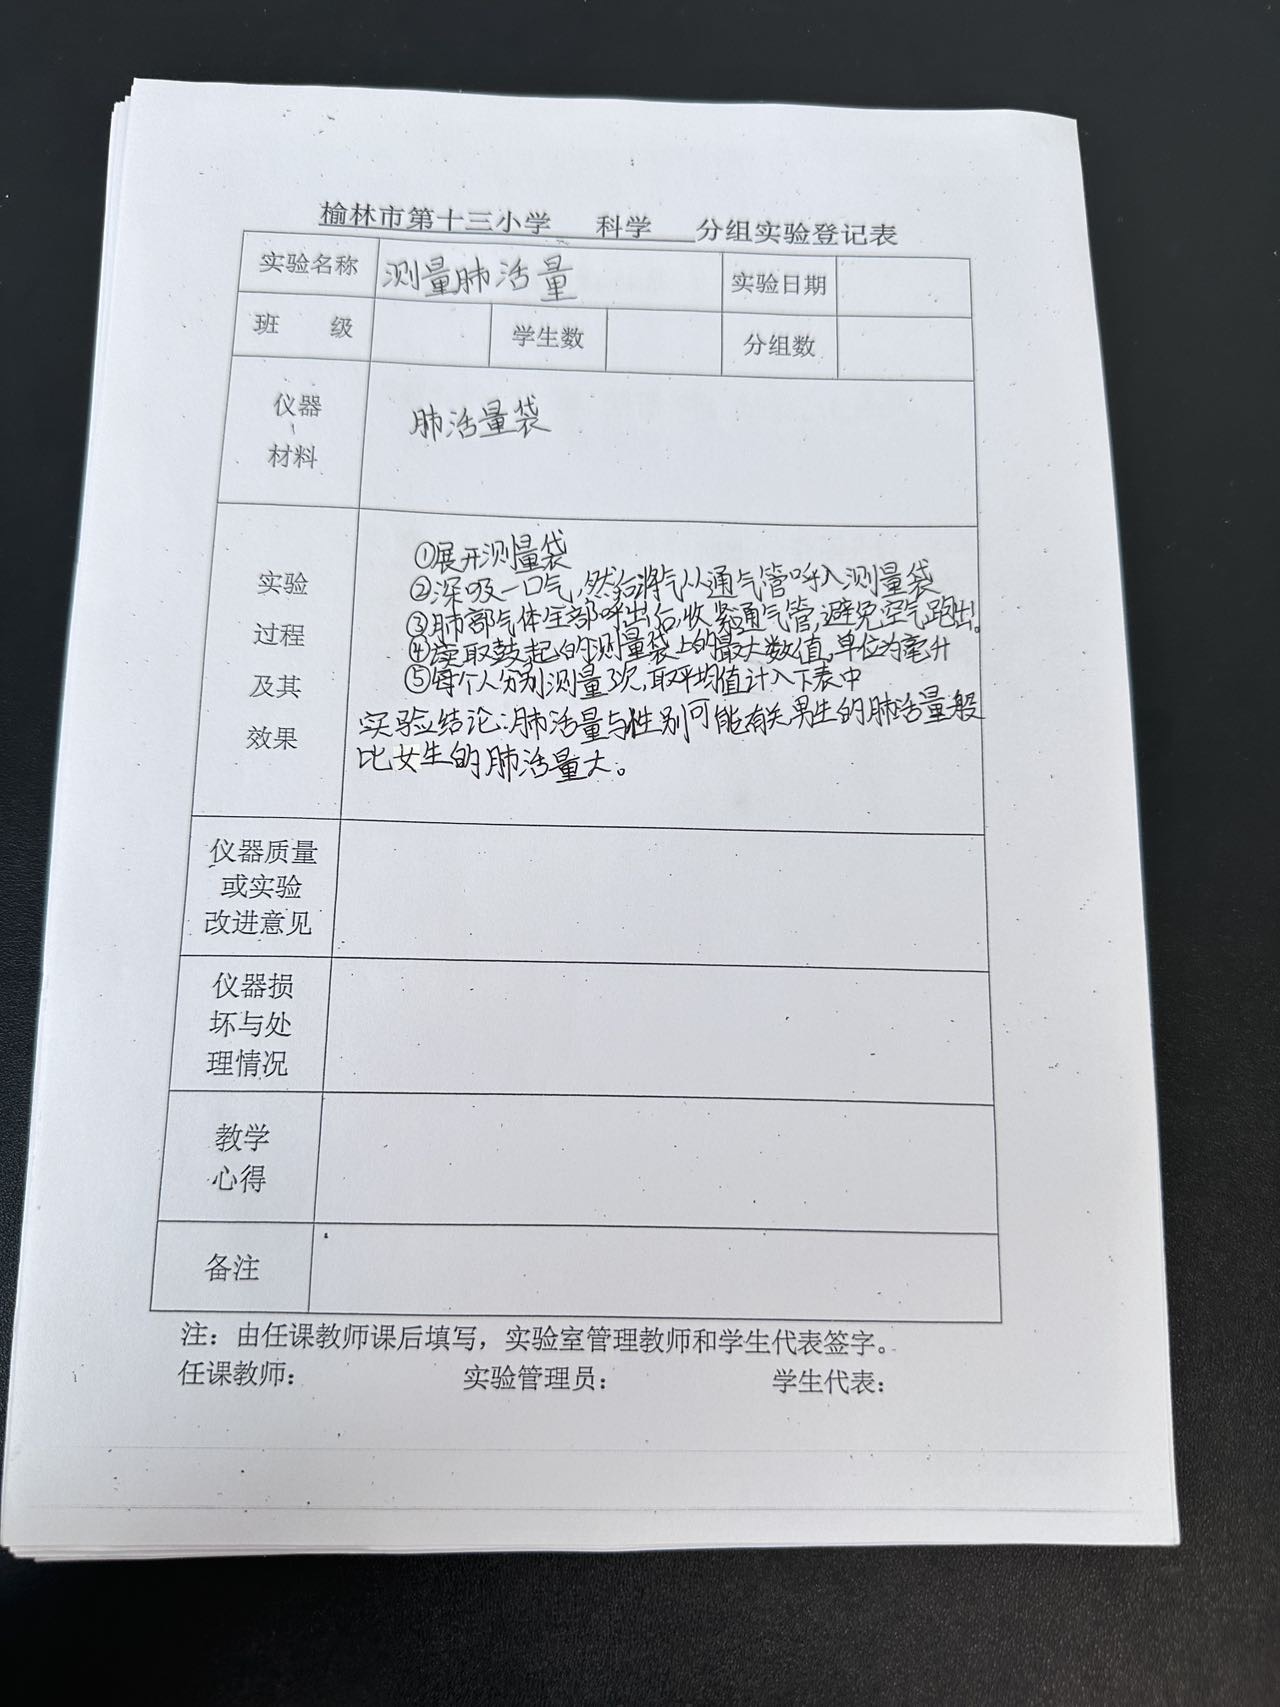 榆林市第十三小学 科学 分组实验登记表
实验名称 测量肺活量 实验日期
班 级 学生数 分组数
仪器
材料
肺活量袋
实验
过程
及其
效果
①展开测量袋
②深吸一口气,然后将气从通气管呼入测量袋
③肺部气体全部呼出后,收紧通气管,避免空气跑出。
④读取鼓起的测量袋上的最大数值,单位为毫升
⑤每个人分别测量3次,取平均值计入下表中
实验结论:肺活量与性别可能有关男生的肺活量般
比女生的肺活量大。
仪器质量
或实验
改进意见
仪器损
坏与处
理情况
教学
心得
备注
注：由任课教师课后填写，实验室管理教师和学生代表签字。
任课教师： 实验管理员： 学生代表：